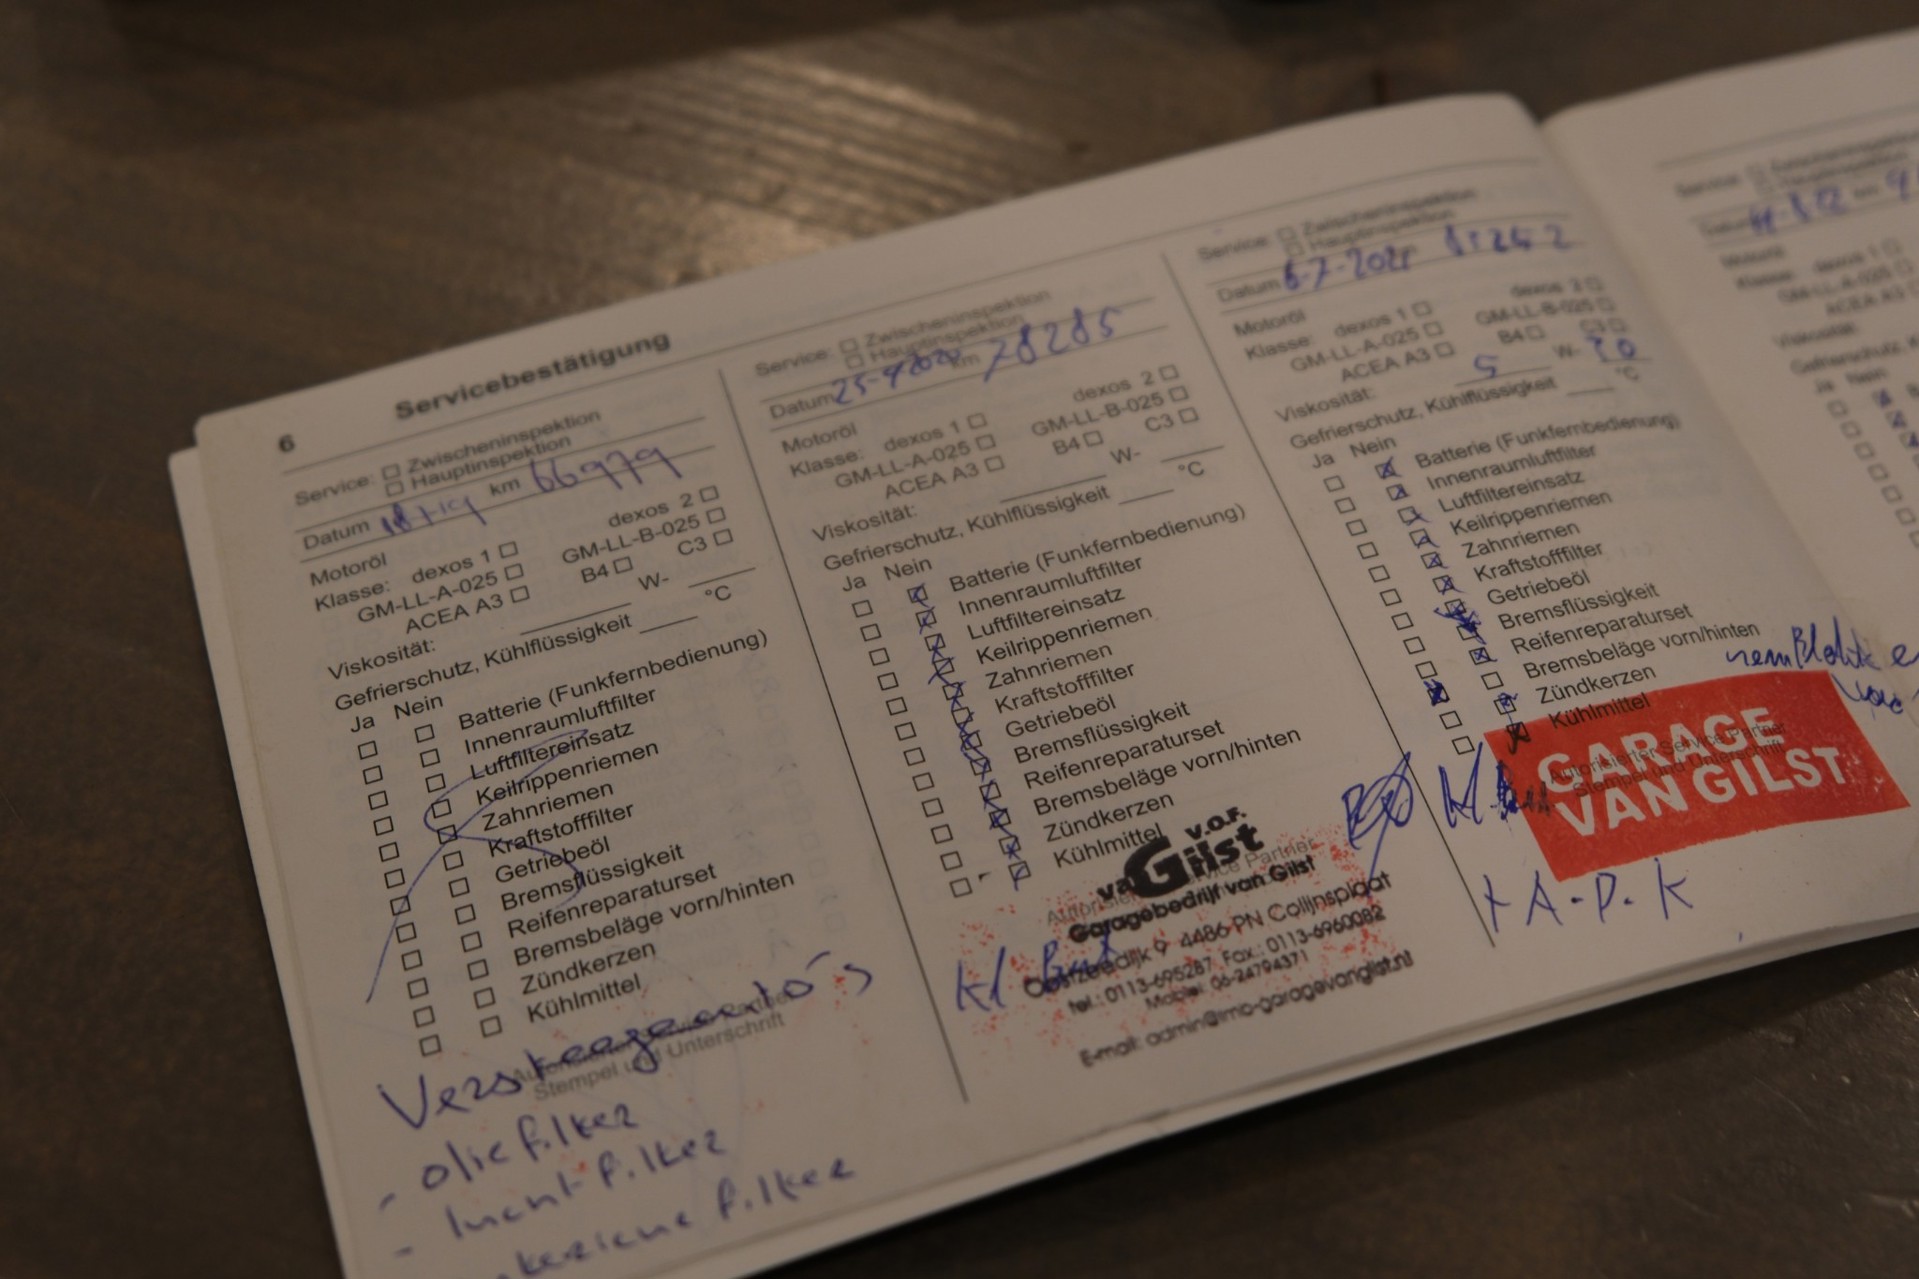 6 Servicebestätigung
Service: Zwischeninspektion
Hauptinspektion
Datum 18-7-19 km 66979
Motoröl
Klasse: dexos 1 dexos 2
GM-LL-A-025 GM-LL-B-025
ACEA A3 B4 C3
Viskosität: W-
Gefrierschutz, Kühlflüssigkeit °C
Ja Nein
Batterie (Funkfernbedienung)
Innenraumluftfilter
Luftfiltereinsatz
Keilrippenriemen
Zahnriemen
Kraftstofffilter
Getriebeöl
Bremsflüssigkeit
Reifenreparaturset
Bremsbeläge vorn/hinten
Zündkerzen
Kühlmittel
Autorisierter Service Partner
Stempel und Unterschrift
- olie filter
- lucht filter
filter
Service: Zwischeninspektion
Hauptinspektion
Datum km 78285
Motoröl
Klasse: dexos 1 dexos 2
GM-LL-A-025 GM-LL-B-025
ACEA A3 B4 C3
Viskosität: W-
Gefrierschutz, Kühlflüssigkeit °C
Ja Nein
Batterie (Funkfernbedienung)
Innenraumluftfilter
Luftfiltereinsatz
Keilrippenriemen
Zahnriemen
Kraftstofffilter
Getriebeöl
Bremsflüssigkeit
Reifenreparaturset
Bremsbeläge vorn/hinten
Zündkerzen
Kühlmittel
v.o.f.
van Gilst
Garagebedrijf van Gilst
Oostzeedijk 9 4486 PN Colijnsplaat
tel.: 0113-695287 Fax.: 0113-6960082
Mobiel: 06-24794371
E-mail: admin@imo-garagevangilst.nl
kl Beurt
Service: Zwischeninspektion
Hauptinspektion
Datum 6-7-2021
Motoröl
Klasse: dexos 1 dexos 2
GM-LL-A-025 GM-LL-B-025
ACEA A3 B4 C3
Viskosität: 5 W-
Gefrierschutz, Kühlflüssigkeit °C
Ja Nein
Batterie (Funkfernbedienung)
Innenraumluftfilter
Luftfiltereinsatz
Keilrippenriemen
Zahnriemen
Kraftstofffilter
Getriebeöl
Bremsflüssigkeit
Reifenreparaturset
Bremsbeläge vorn/hinten
Zündkerzen
Kühlmittel
Autorisierter Service Partner
Stempel und Unterschrift
GARAGE
VAN GILST
+ A.P.K
Service: Zwischeninspektion
Hauptinspektion
Datum
Motoröl
Klasse: dexos 1
GM-LL-A-025
ACEA A3
Viskosität:
Ja Nein